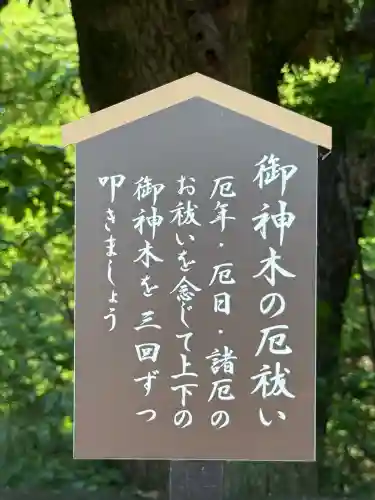 御神木の厄祓い
厄年・厄日・諸厄の
お祓いを念じて上下の
御神木を三回ずつ
叩きましょう